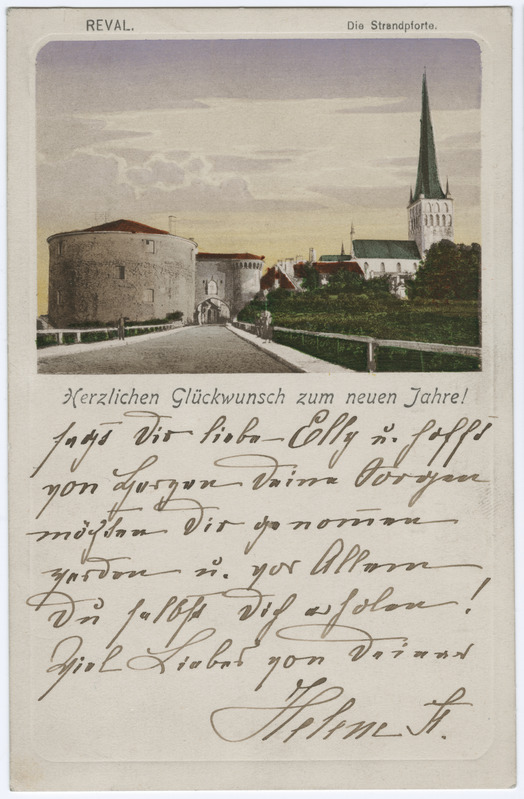 REVAL. Die Strandpforte.
Herzlichen Glückwunsch zum neuen Jahre!
sagt Dir liebe Elly u. hofft
von Herzen Deine Sorgen
möchten Dir genom̅en
werden u. vor Allem
Du selbst Dich erholen!
Viel Liebes von Deiner
Helene